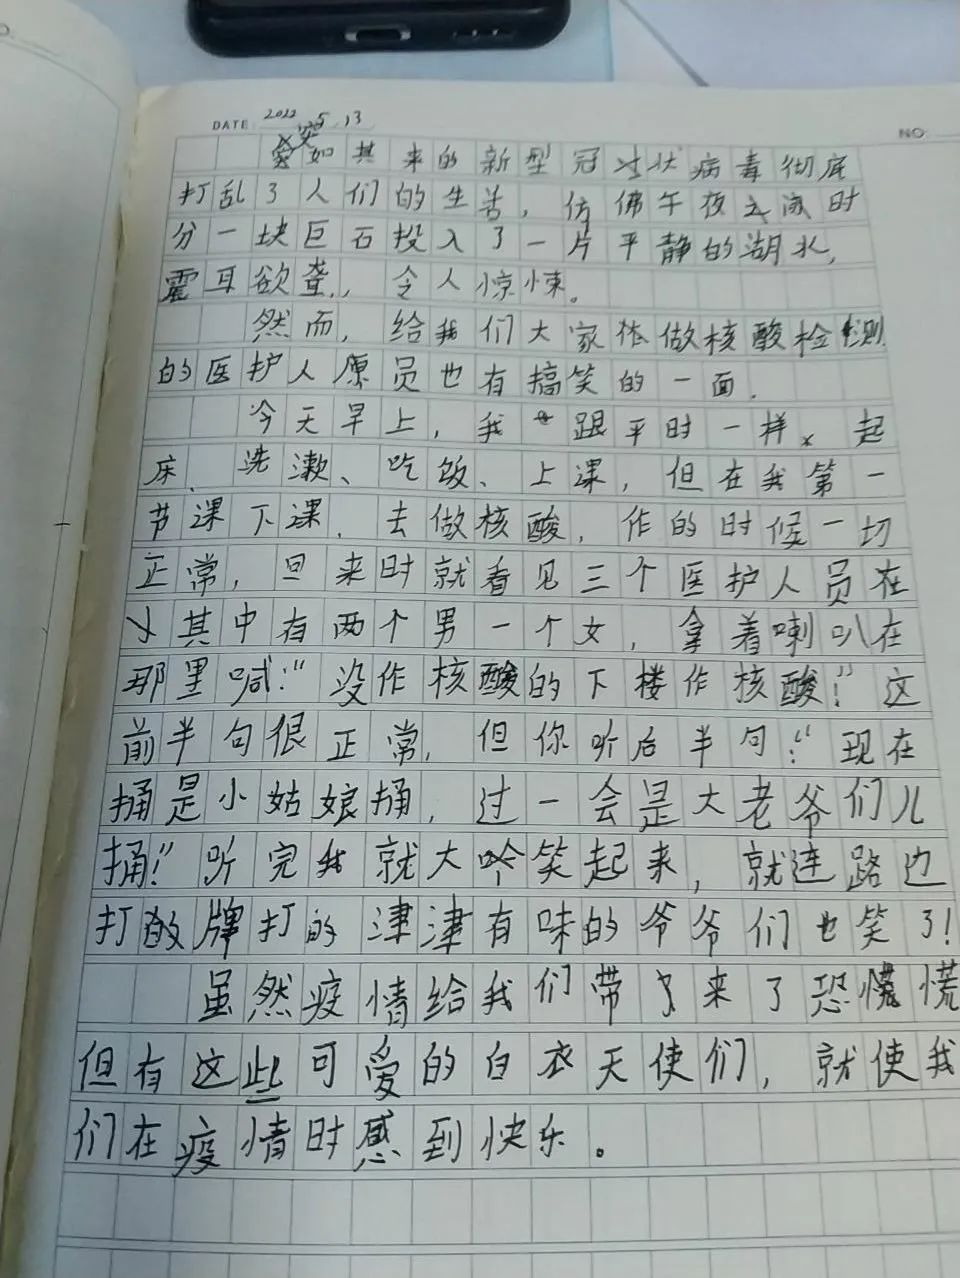 DATE 2022 5 13
NO
突如其来的新型冠状病毒彻底
打乱了人们的生活，仿佛午夜时
分一块巨石投入了一片平静的湖水，
震耳欲聋，令人惊悚。
然而，给我们大家做核酸检测
的医护人员也有搞笑的一面.
今天早上，我跟平时一样，起
床、洗漱、吃饭、上课，但在我第一
节课下课，去做核酸，作的时候一切
正常，但来时就看见三个医护人员在
其中有两个男一个女，拿着喇叭在
那里喊:“没作核酸的下楼作核酸！”这
前半句很正常，但你听后半句:“现在
捅是小姑娘捅，过一会是大老爷们儿
捅！”听完我就大吟笑起来，就连路边
打牌打的津津有味的爷爷们也笑了！
虽然疫情给我们带来了恐慌
但有这些可爱的白衣天使们，就使我
们在疫情时感到快乐。